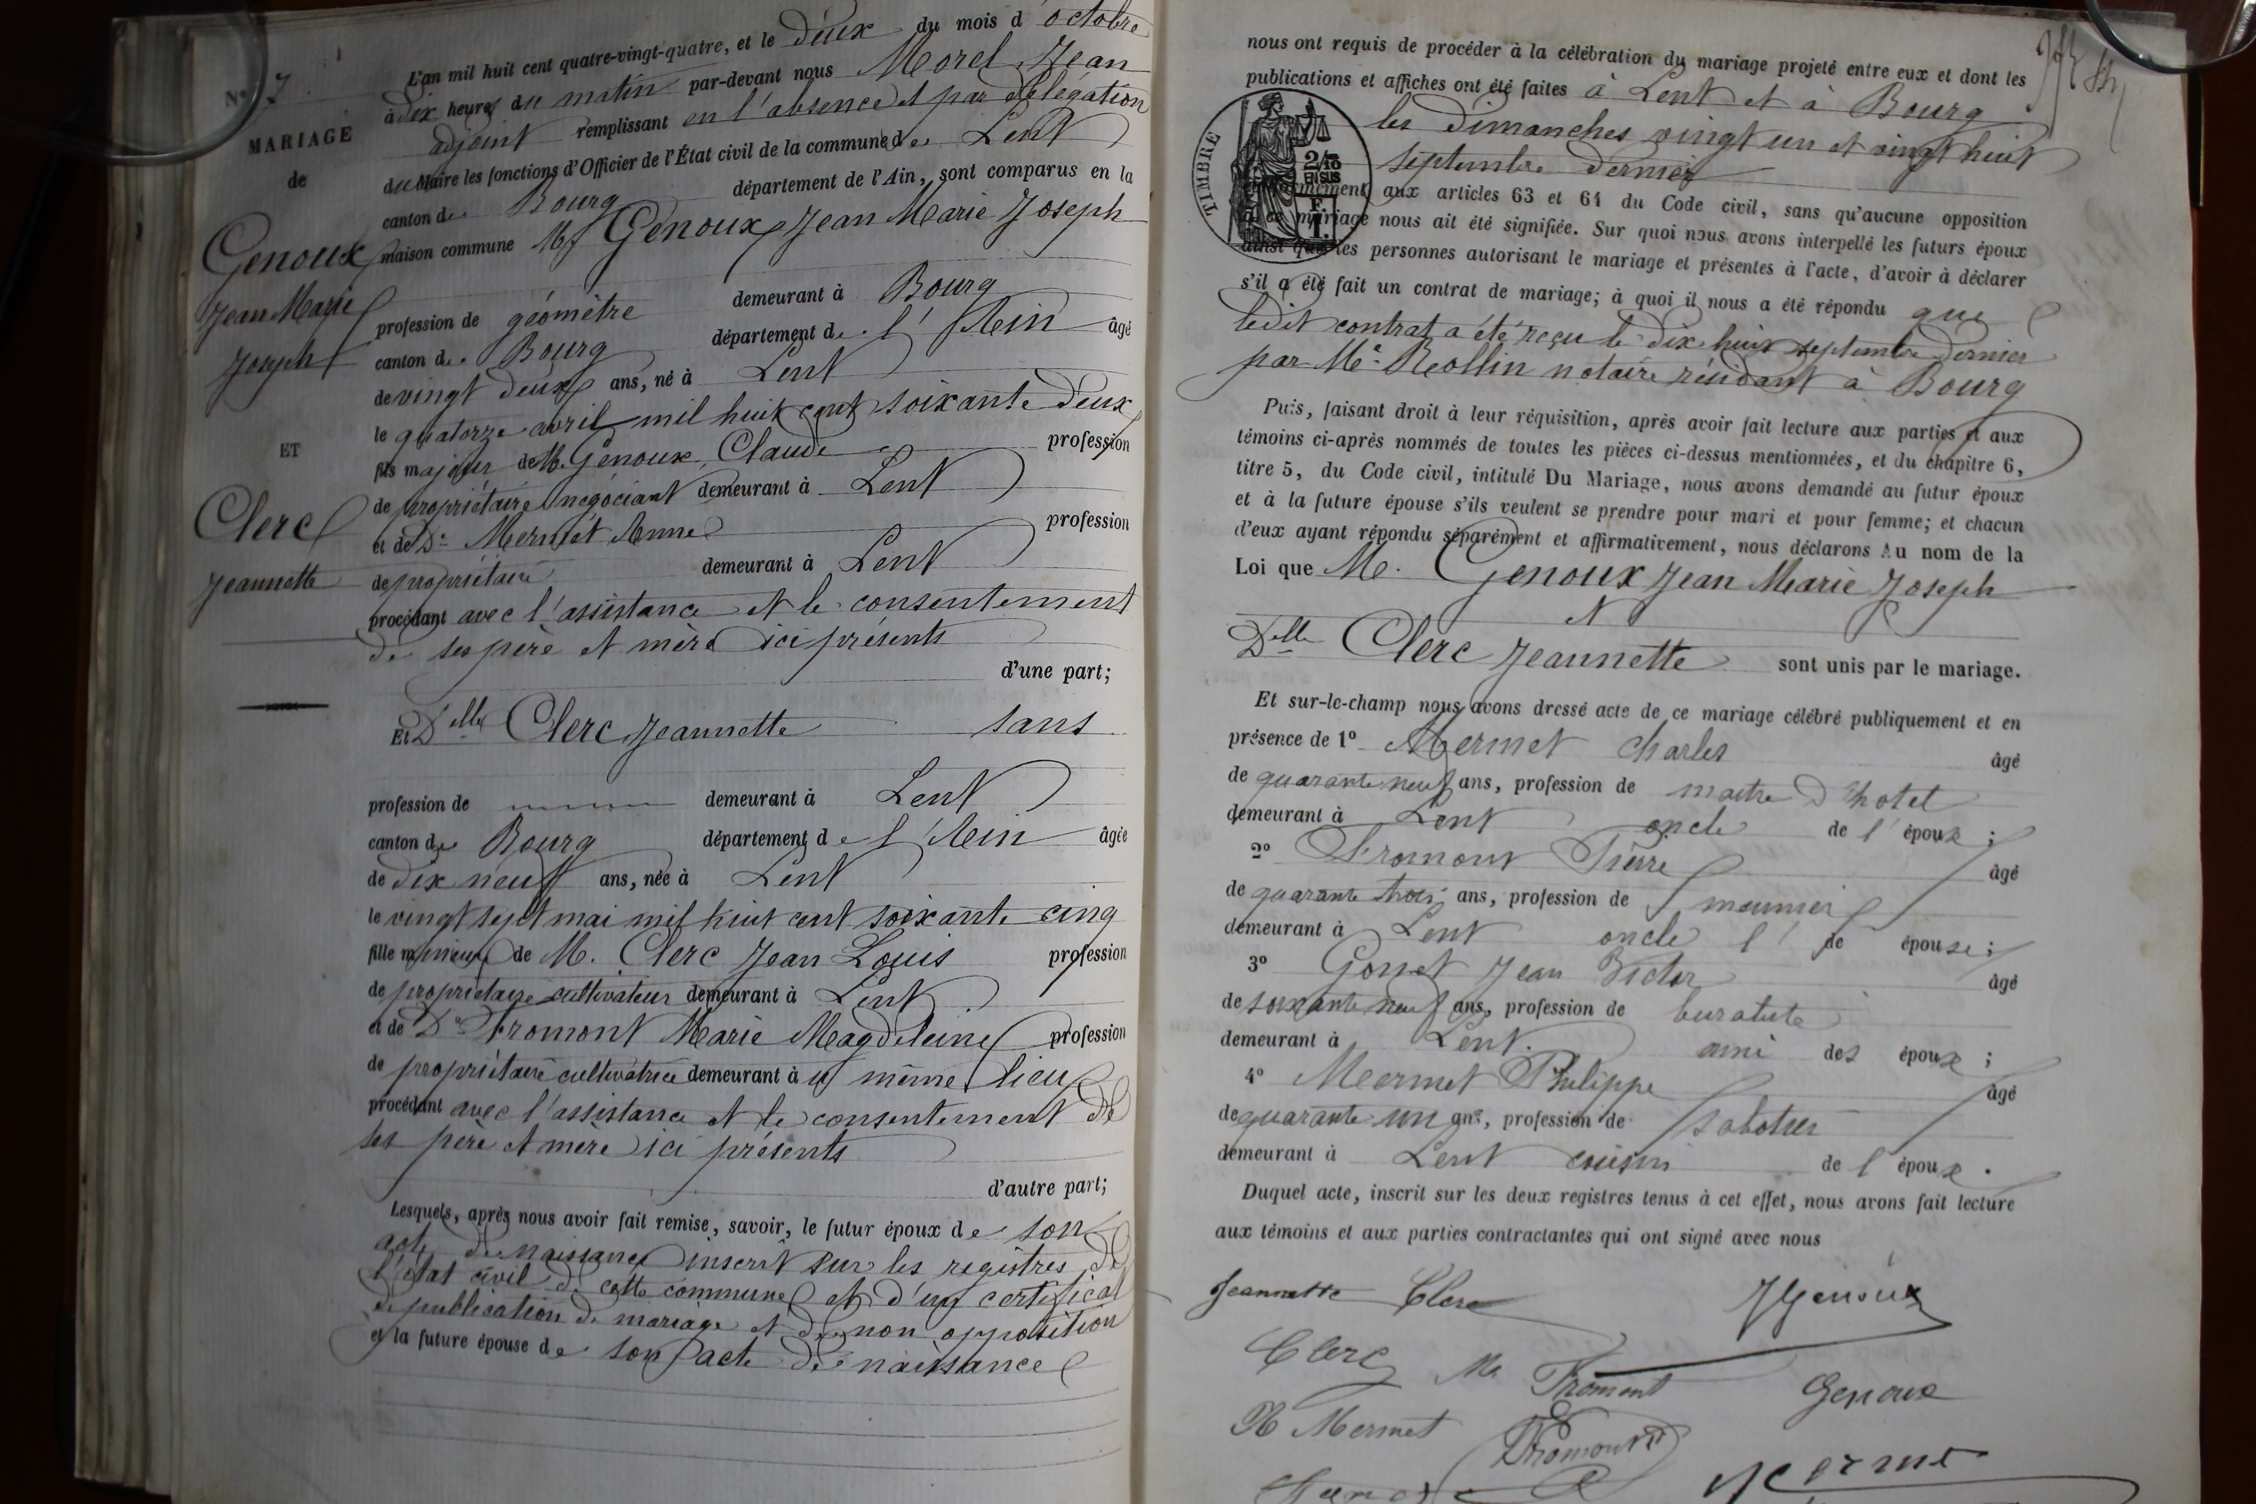 N° 7
MARIAGE
de
Genoux
Jean Marie
Joseph
ET
Clerc
Jeannette
L'an mil huit cent quatre-vingt-quatre, et le deux du mois d'octobre
à dix heures du matin par-devant nous Morel Jean
adjoint remplissant en l'absence et par délégation
du Maire les fonctions d'Officier de l'État civil de la commune de Lent
canton de Bourg département de l'Ain, sont comparus en la
maison commune Mr Genoux Jean Marie Joseph
profession de géomètre demeurant à Bourg
canton de Bourg département de l'Ain âgé
de vingt deux ans, né à Lent
le quatorze avril mil huit cent soixante deux
fils majeur de M. Genoux Claude profession
de propriétaire négociant demeurant à Lent
et de De Mermet Anne profession
de propriétaire demeurant à Lent
procédant avec l'assistance et le consentement
de ses père et mère ici présents
d'une part;
Et Delle Clerc Jeannette sans
profession de demeurant à Lent
canton de Bourg département de l'Ain âgée
de dix neuf ans, née à Lent
le vingt sept mai mil huit cent soixante cinq
fille mineure de M. Clerc Jean Louis profession
de propriétaire cultivateur demeurant à Lent
et de De Fromont Marie Magdeleine profession
de propriétaire cultivatrice demeurant à u même lieu
procédant avec l'assistance et le consentement de
ses père et mère ici présents
d'autre part;
Lesquels, après nous avoir fait remise, savoir, le futur époux de son
acte de naissance inscrit sur les registres de
l'état civil de cette commune et d'un certificat
de publication de mariage et de non opposition
et la future épouse de son acte de naissance
nous ont requis de procéder à la célébration du mariage projeté entre eux et dont les
publications et affiches ont été faites à Lent et à Bourg
les dimanches vingt un et vingt huit
septembre dernier
TIMBRE
2/10
EN SUS
aux articles 63 et 64 du Code civil, sans qu'aucune opposition
mariage nous ait été signifiée. Sur quoi nous avons interpellé les futurs époux
ainsi que les personnes autorisant le mariage et présentes à l'acte, d'avoir à déclarer
s'il a été fait un contrat de mariage; à quoi il nous a été répondu que
ledit contrat a été reçu le dix huit septembre dernier
par Me Rollin notaire résidant à Bourg
Puis, faisant droit à leur réquisition, après avoir fait lecture aux parties et aux
témoins ci-après nommés de toutes les pièces ci-dessus mentionnées, et du chapitre 6,
titre 5, du Code civil, intitulé Du Mariage, nous avons demandé au futur époux
et à la future épouse s'ils veulent se prendre pour mari et pour femme; et chacun
d'eux ayant répondu séparément et affirmativement, nous déclarons Au nom de la
Loi que M. Genoux Jean Marie Joseph
et
Delle Clerc Jeannette sont unis par le mariage.
Et sur-le-champ nous avons dressé acte de ce mariage célébré publiquement et en
présence de 1° Mermet Charles âgé
de quarante neuf ans, profession de maitre d'hotel
demeurant à Lent oncle de l'époux;
2° Fromont Pierre âgé
de quarante trois ans, profession de meunier
demeurant à Lent oncle de l'épouse;
3° Gonet Jean Victor âgé
de soixante neuf ans, profession de buraliste
demeurant à Lent ami des époux;
4° Mermet Philippe âgé
de quarante un ans, profession de sabotier
demeurant à Lent cousin de l'époux.
Duquel acte, inscrit sur les deux registres tenus à cet effet, nous avons fait lecture
aux témoins et aux parties contractantes qui ont signé avec nous
Jeannette Clerc JGenoux
Clerc Me Fromont Genoux
Ph Mermet Fromont
Mermet